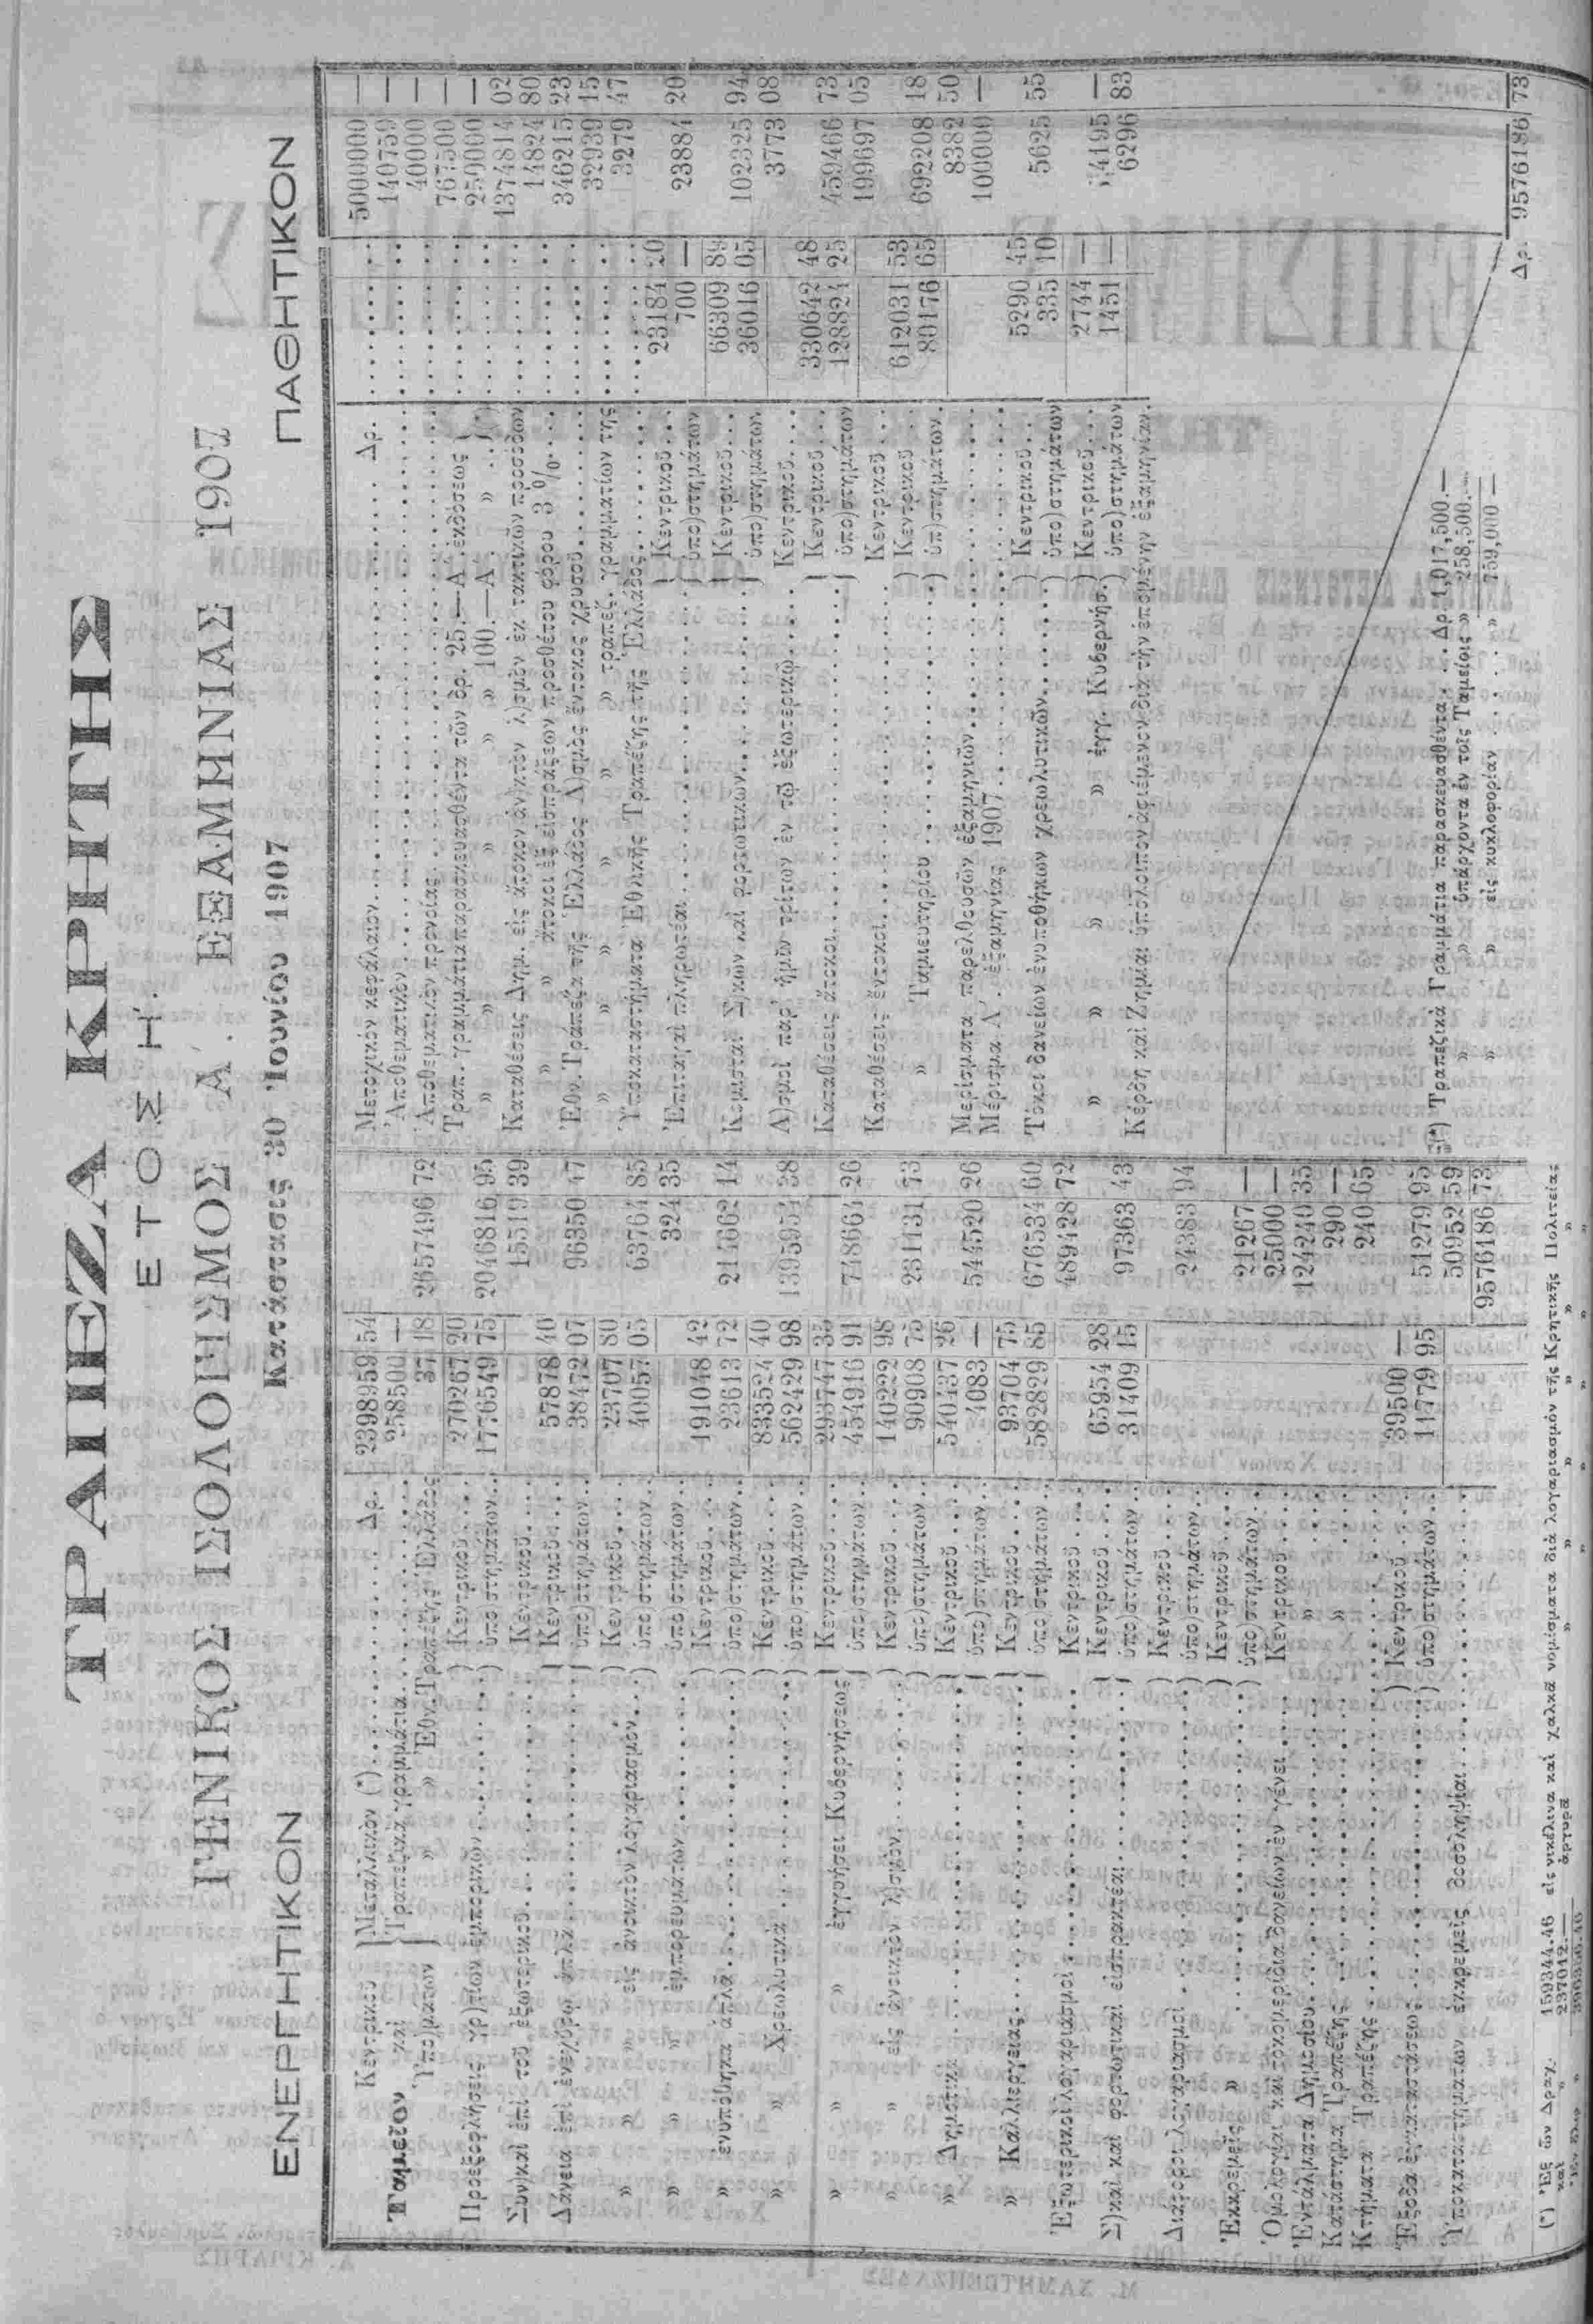 ΤΡΑΠΕΖΑ ΚΡΗΤΗΣ
ΕΤΟΣ Η΄.
ΓΕΝΙΚΟΣ ΙΣΟΛΟΓΙΣΜΟΣ Α΄. ΕΞΑΜΗΝΙΑΣ 1907
Κατάστασις 30 Ἰουνίου 1907
ΕΝΕΡΓΗΤΙΚΟΝ
Ταμεῖον Κεντρικοῦ καὶ Ὑπο)μάτων
Μεταλλικὸν (*) Δρ. 2398959 54
Τραπεζικὰ γραμμάτια 258500 —
» » Ἐθν. Τραπέζης Ἑλλάδος 37 18 2657496 72
Προεξοφλήσεις γρ)τίων ἐμπορικῶν Κεντρικοῦ 270267 20
ὑπο)στημάτων 1776549 75 2046816 95
Συν)καὶ ἐπὶ τοῦ ἐξωτερικοῦ Κεντρικοῦ 15519 39
Δάνεια ἐπὶ ἐνεχύρῳ ἁπλᾶ Κεντρικοῦ 57878 40
ὑπο)στημάτων 38472 07 96350 47
» » » εἰς ἀνοικτὸν λογαριασμὸν Κεντρικοῦ 23707 80
ὑπο)στημάτων 40057 05 63764 85
» » ἐμπορευμάτων ὑπο)στημάτων 324 35
» ἐνυπόθηκα ἁπλᾶ Κεντρικοῦ 191048 42
ὑπο)στημάτων 23613 72 214662 14
» » Χρεωλυτικὰ Κεντρικοῦ 833524 40
ὑπο)στημάτων 562429 98 1395954 38
» » » ἐγγυήσει Κυβερνήσεως Κεντρικοῦ 293747 35
ὑπο)στημάτων 454916 91 748664 26
» » εἰς ἀνοικτὸν λ)σμὸν Κεντρικοῦ 140222 98
ὑπο)στημάτων 90908 75 231131 73
» Δημοτικὰ Κεντρικοῦ 540437 26
ὑπο)στημάτων 4083 — 544520 26
» Καλλιεργείας Κεντρικοῦ 93704 75
ὑπο)στημάτων 582829 85 676534 60
Ἐξωτερικοὶ λογαριασμοὶ Κεντρικοῦ 489428 72
Σ)καὶ καὶ φορτωτικαὶ εἰσπρακτέαι Κεντρικοῦ 65954 28
ὑπο)στημάτων 31409 15 97363 43
Διάφοροι λογαριασμοὶ Κεντρικοῦ
ὑπο)στημάτων 24383 94
Ἐκκρεμεῖς » Κεντρικοῦ
ὑπο)στημάτων 21267 —
Ὁμολογίαι καὶ τοκομερίδια δανείων ἐν γένει Κεντρικοῦ 25000 —
Ἐντάλματα Δημοσίου » 124240 35
Κατάστημα Τραπέζης » 290 —
Κτήματα Τραπέζης 240 65
Ἔξοδα ἐγκαταστάσεως Κεντρικοῦ 39500 —
ὑπο)στημάτων 11779 95 51279 95
Ὑποκαταστημάτων ἐκκρεμεῖς δοσοληψίαι 50952 59
9576186 73
(*) Ἐξ ὧν Δραχ. 159344.46 εἰς νικέλινα καὶ χαλκᾶ νομίσματα διὰ λογαριασμὸν τῆς Κρητικῆς Πολιτείας
καὶ » 237012.— » ἀργυρᾶ » » » » »
ΠΑΘΗΤΙΚΟΝ
Μετοχικὸν κεφάλαιον Δρ. 5000000 —
Ἀποθεματικὸν 140759 —
Ἀποθεματικὸν προνοίας 40000 —
Τραπ. γραμμάτια παρασκευασθέντα τῶν δρ. 25.—Α΄. ἐκδόσεως 767500 —
» » » » » 100.—Α΄. » (*) 250000 —
Καταθέσεις Δημ. εἰς ἄτοκον ἀν)κτὸν λ)σμὸν ἐκ τακτικῶν προσόδων 1374814 02
» » ἄτοκοι ἐξ εἰσπράξεων προσθέτου φόρου 3 % 14824 80
Ἐθν. Τραπέζα τῆς Ἑλλάδος Λ)σμὸς ἔντοκος χρυσοῦ 346215 23
» » » » » τραπεζ. γραμματίων της 32939 15
Ὑποκαταστήματα Ἐθνικῆς Τραπέζης τῆς Ἑλλάδος 3279 47
Ἐπιταγαὶ πληρωτέαι Κεντρικοῦ 23184 20
ὑπο)στημάτων 700 — 23884 20
Κομισταὶ Σ)κῶν καὶ φορτωτικῶν Κεντρικοῦ 66309 89
ὑπο)στημάτων 36016 05 102325 94
Λ)σμοὶ παρ' ἡμῖν τρίτων ἐν τῷ ἐξωτερικῷ Κεντρικοῦ 3773 08
Καταθέσεις ἄτοκοι Κεντρικοῦ 330642 48
ὑπο)στημάτων 128824 25 459466 73
Καταθέσεις ἔντοκοι Κεντρικοῦ 199697 05
» Ταμιευτηρίου Κεντρικοῦ 612031 53
ὑπ)στημάτων 80176 65 692208 18
Μερίσματα παρελθουσῶν ἑξαμηνιῶν 8382 50
Μέρισμα Α΄. ἑξαμηνίας 1907 100000 —
Τόκοι δανείων ἐνυποθήκων χρεωλυτικῶν Κεντρικοῦ 5290 45
ὑπο)στημάτων 335 10 5625 55
» » » » ἐγγ. Κυβερνήσ. Κεντρικοῦ 2744 —
ὑπο)στημάτων 1451 — 4195 —
Κέρδη καὶ Ζημίαι ὑπόλοιπον ἀφιέμενον διὰ τὴν ἑπομένην ἑξαμηνίαν 6296 83
Δρ. 9576186 73
(*) Τραπεζικὰ Γραμμάτια παρασκευασθέντα Δρ. 1,017,500.—
» » ὑπάρχοντα ἐν τοῖς Ταμείοις » 258,500.—
» » εἰς κυκλοφορίαν » 759,000 —